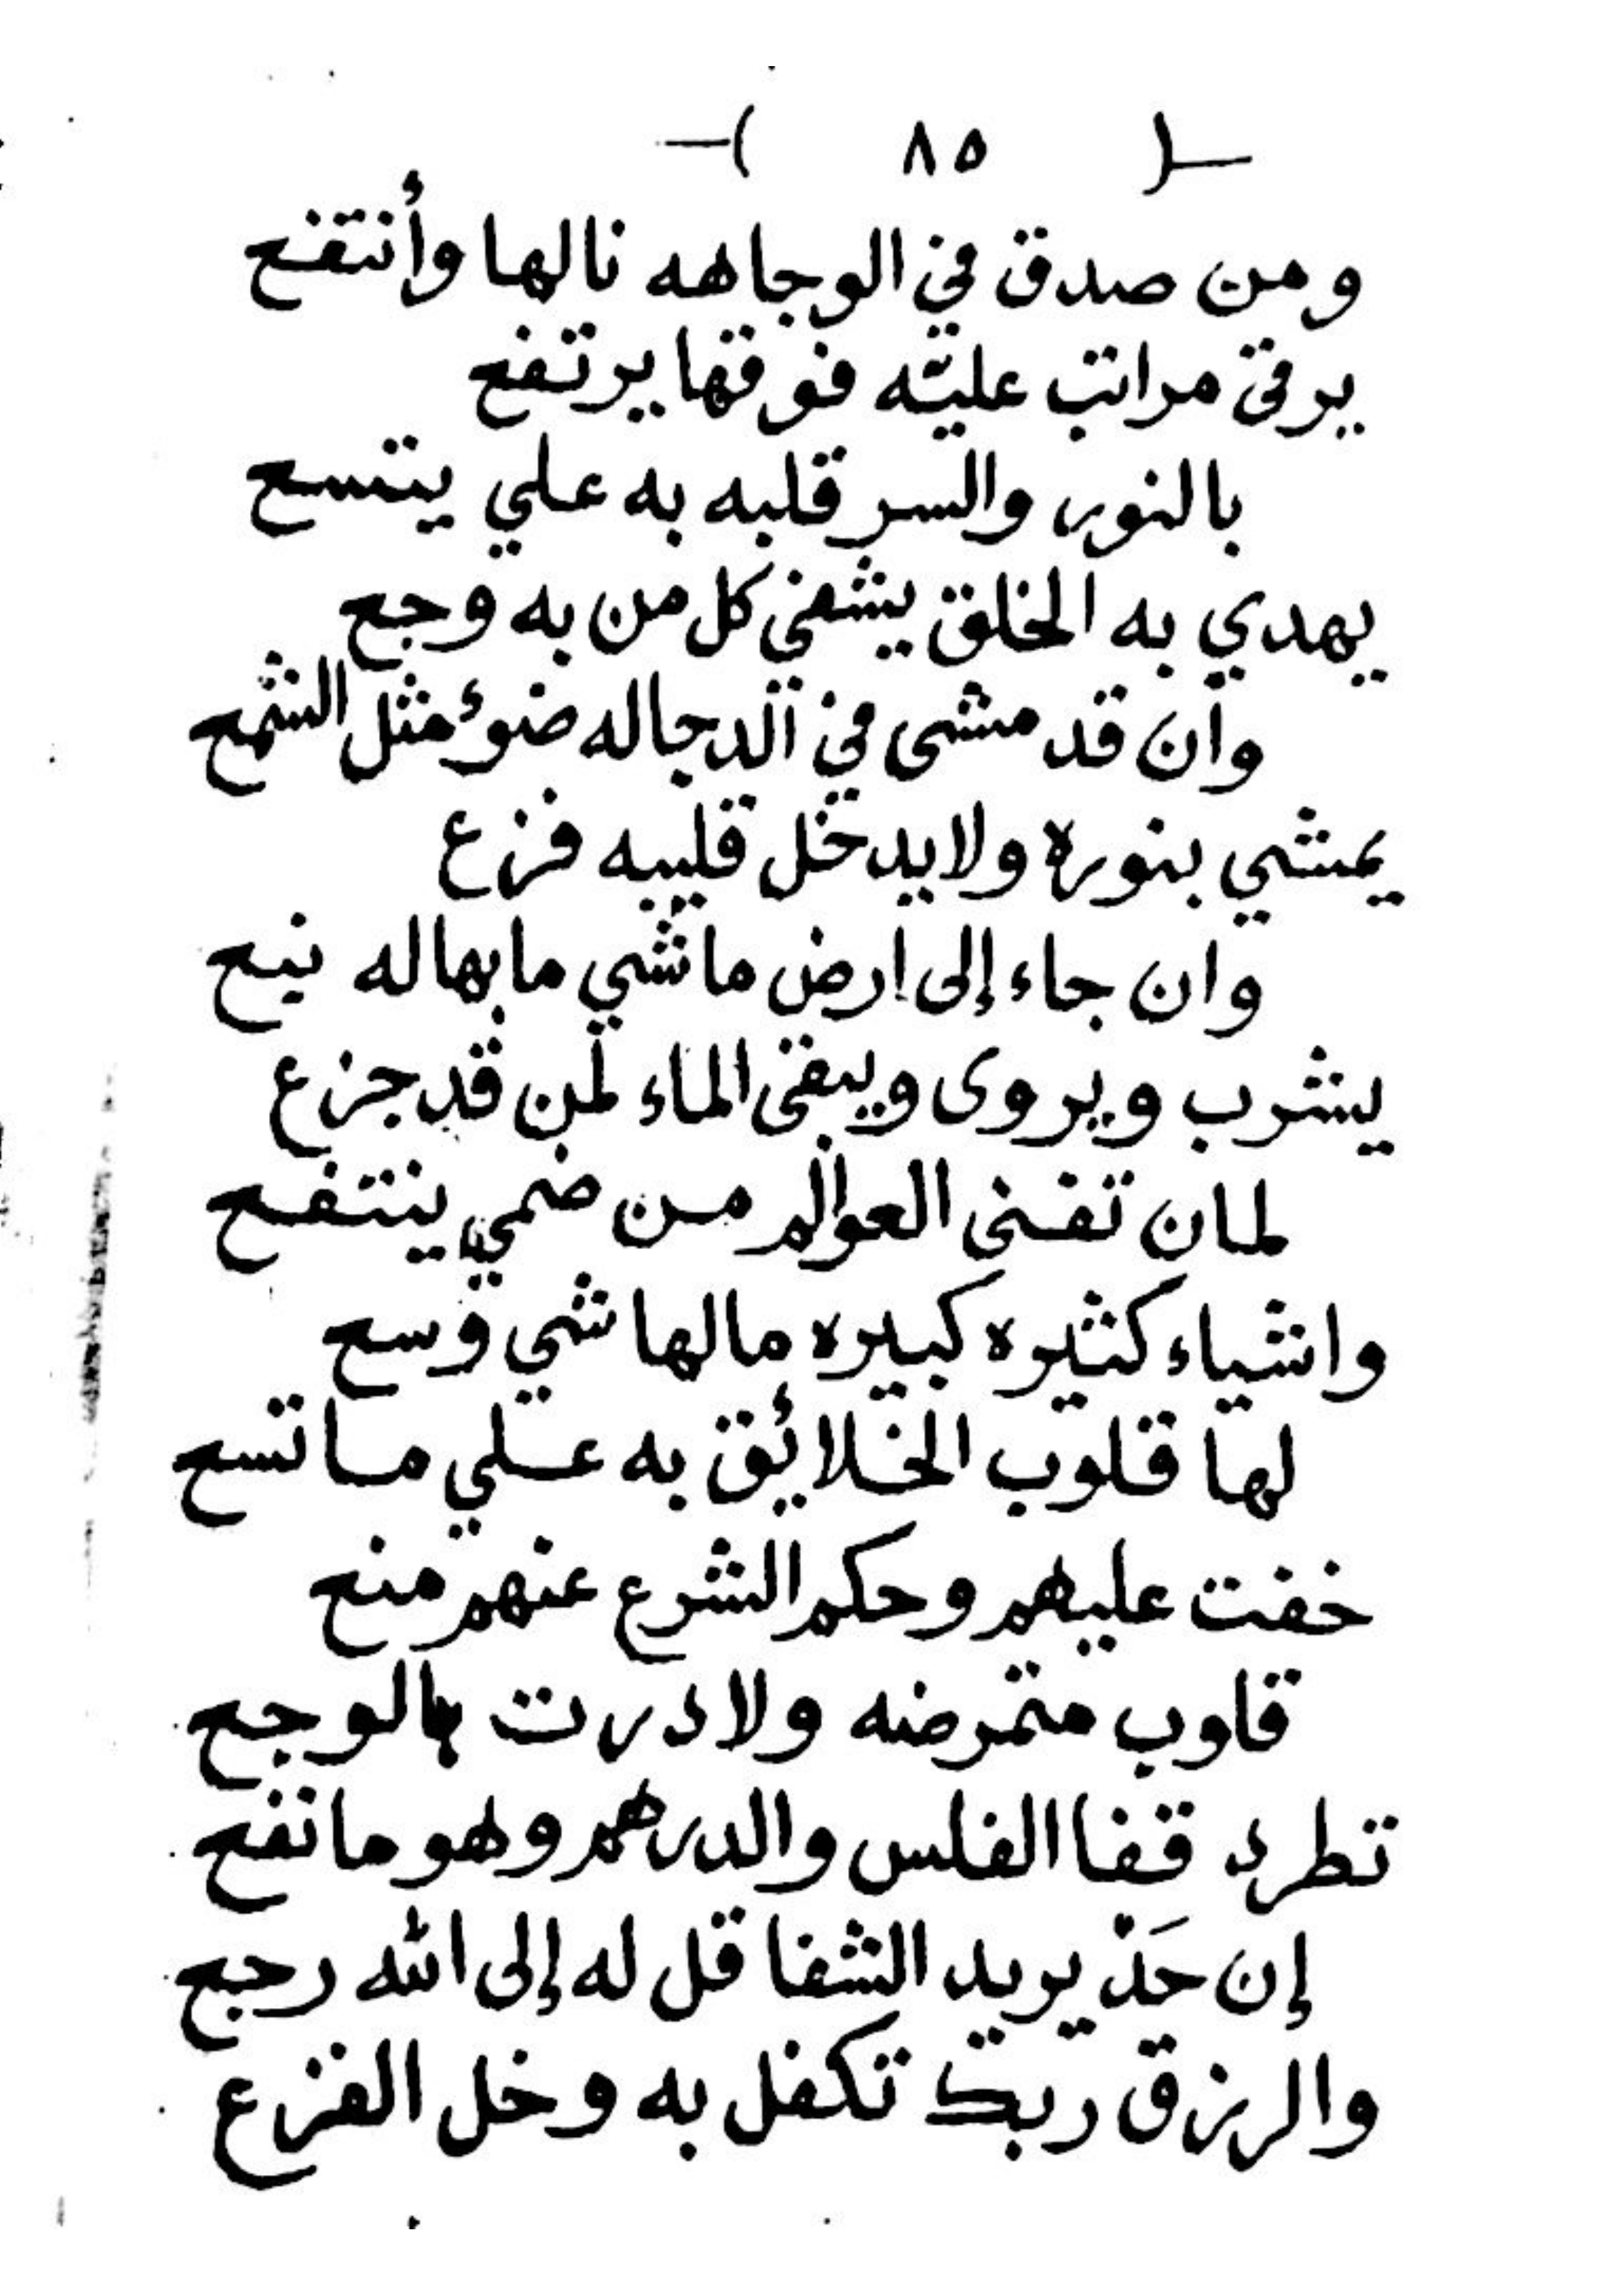 -( ٨٥ )-
ومن صدق في الوجاهه نالها وأنتفع
يرقى مراتب عليّه فوقها يرتفع
بالنور والسر قلبه به علي يتسع
يهدي به الخلق يشفي كل من به وجع
وان قد مشى في الدجاله ضوء مثل الشمع
يمشي بنوره ولايدخل قليبه فزع
وان جاء إلى ارض ماشي مابهاله نبع
يشرب ويروى ويبقى الماء لمن قد جزع
لمان تفنى العوالم من ضمي ينتفع
واشياء كثيره كبيره مالها شي وسع
لها قلوب الخلائق به علي ماتسع
خفت عليهم وحكم الشرع عنهم منع
قلوب متمرضه ولادرت بالوجع
تطرد قفا الفلس والدرهم وهو مانفع
إن حَدْ يريد الشفا قل له إلى الله رجع
والرزق ربك تكفل به وخل الفزع